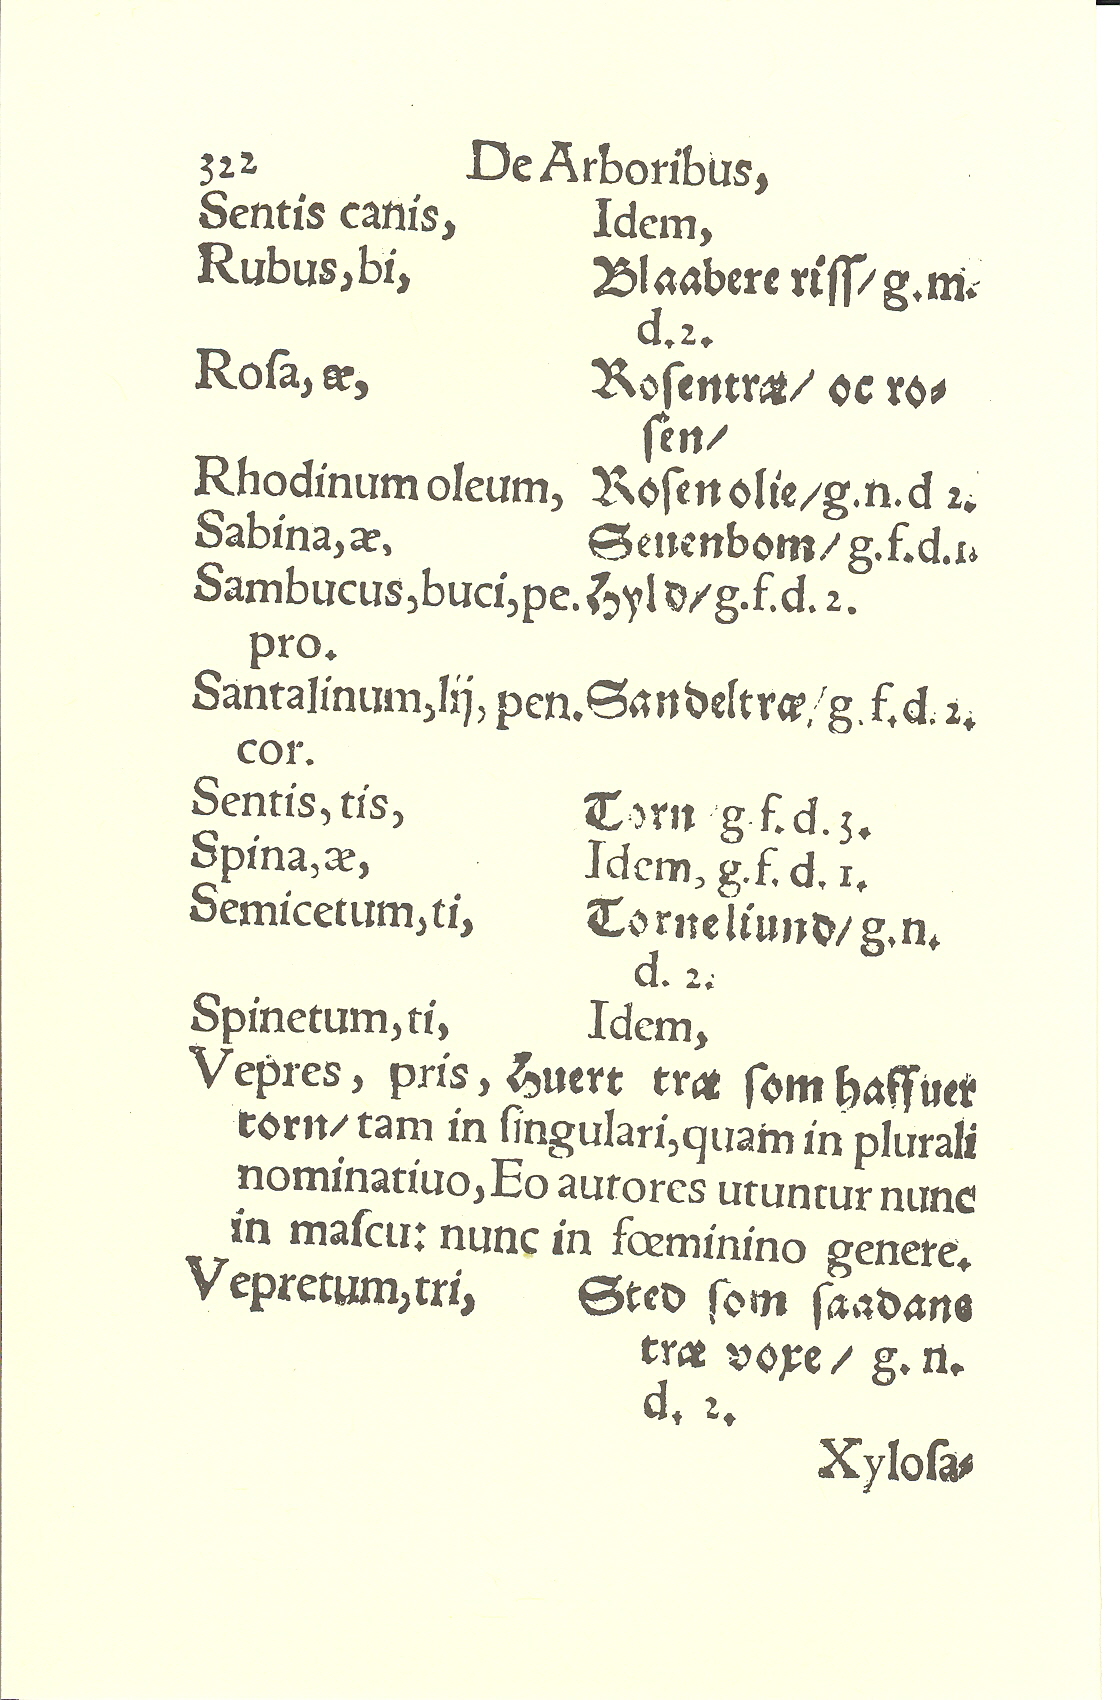 322 De Arboribus,
Sentis canis, Idem,
Rubus, bi, Blaabere riſſ/ g.m.
d.2.
Roſa, æ, Roſentræ/ oc ro⸗
ſen/
Rhodinum oleum, Roſen olie/ g.n.d 2.
Sabina, æ, Seuenbom/ g.f.d.1.
Sambucus, buci, pe. Hyld/ g.f.d. 2.
pro.
Santalinum, lij, pen. Sandeltræ/ g.f.d.2.
cor.
Sentis, tis, Torn g.f.d.3.
Spina, æ, Idem, g.f.d.1.
Semicetum, ti, Torneliund/ g.n.
d. 2.
Spinetum, ti, Idem,
Vepres, pris, Huert træ ſom haffuer
torn/ tam in ſingulari, quam in plurali
nominatiuo, Eo autores utuntur nunc
in maſcu: nunc in fœminino genere.
Vepretum, tri, Sted ſom ſaadane
træ voxe/ g. n.
d. 2.
Xyloſa⸗